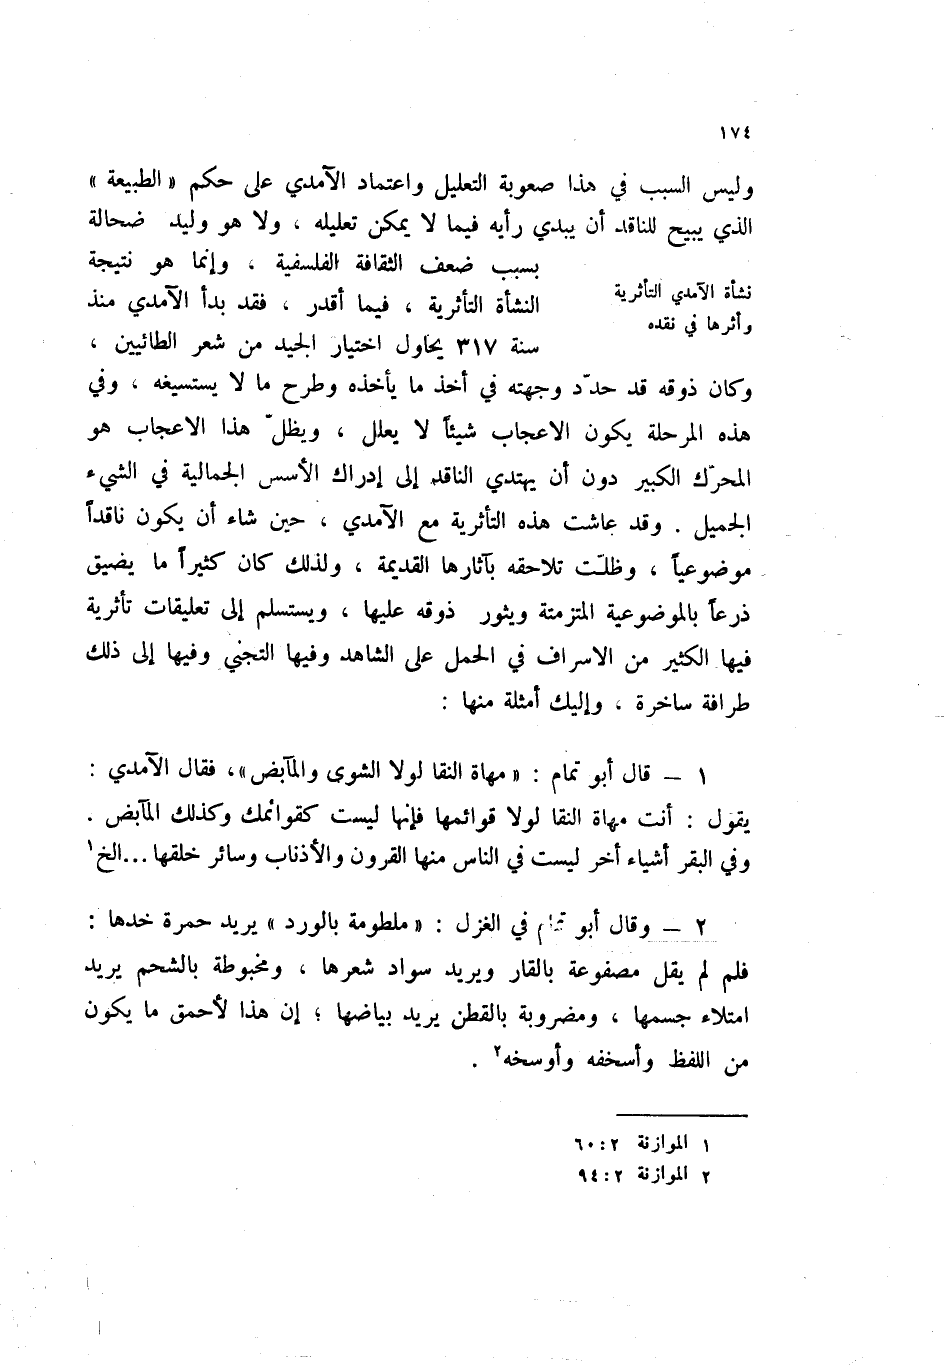 ١٧٤
وليس السبب في هذا صعوبة التعليل واعتماد الآمدي على حكم « الطبيعة »
الذي يبيح للناقد أن يبدي رأيه فيما لا يمكن تعليله ، ولا هو وليد ضحالة
نشأة الآمدي التأثرية
وأثرها في نقده
بسبب ضعف الثقافة الفلسفية ، وإنما هو نتيجة
النشأة التأثرية ، فيما أقدر ، فقد بدأ الآمدي منذ
سنة ٣١٧ يحاول اختيار الجيد من شعر الطائيين ،
وكان ذوقه قد حدّد وجهته في أخذ ما يأخذه وطرح ما لا يستسيغه ، وفي
هذه المرحلة يكون الاعجاب شيئاً لا يعلل ، ويظلّ هذا الاعجاب هو
المحرّك الكبير دون أن يهتدي الناقد إلى إدراك الأسس الجمالية في الشيء
الجميل . وقد عاشت هذه التأثرية مع الآمدي ، حين شاء أن يكون ناقداً
موضوعياً ، وظلّت تلاحقه بآثارها القديمة ، ولذلك كان كثيراً ما يضيق
ذرعاً بالموضوعية المتزمتة ويثور ذوقه عليها ، ويستسلم إلى تعليقات تأثرية
فيها الكثير من الاسراف في الحمل على الشاهد وفيها التجني وفيها إلى ذلك
طرافة ساخرة ، وإليك أمثلة منها :
١ – قال أبو تمام : « مهاة النقا لولا الشوى والمآبض»، فقال الآمدي :
يقول : أنت مهاة النقا لولا قوائمها فإنها ليست كقوائمك وكذلك المآبض .
وفي البقر أشياء أخر ليست في الناس منها القرون والأذناب وسائر خلقها...الخ١
٢ – وقال أبو تمام في الغزل : « ملطومة بالورد » يريد حمرة خدها :
فلم لم يقل مصفوعة بالقار ويريد سواد شعرها ، ومخبوطة بالشحم يريد
امتلاء جسمها ، ومضروبة بالقطن يريد بياضها ؛ إن هذا لأحمق ما يكون
من اللفظ وأسخفه وأوسخه٢ .
١ الموازنة ٢ : ٦٠
٢ الموازنة ٢ : ٩٤